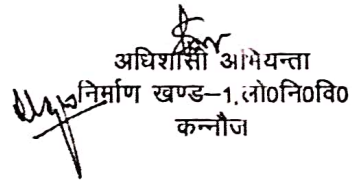 अधिशासी अभियन्ता
निर्माण खण्ड–1, लो0नि0वि0
कन्नौज